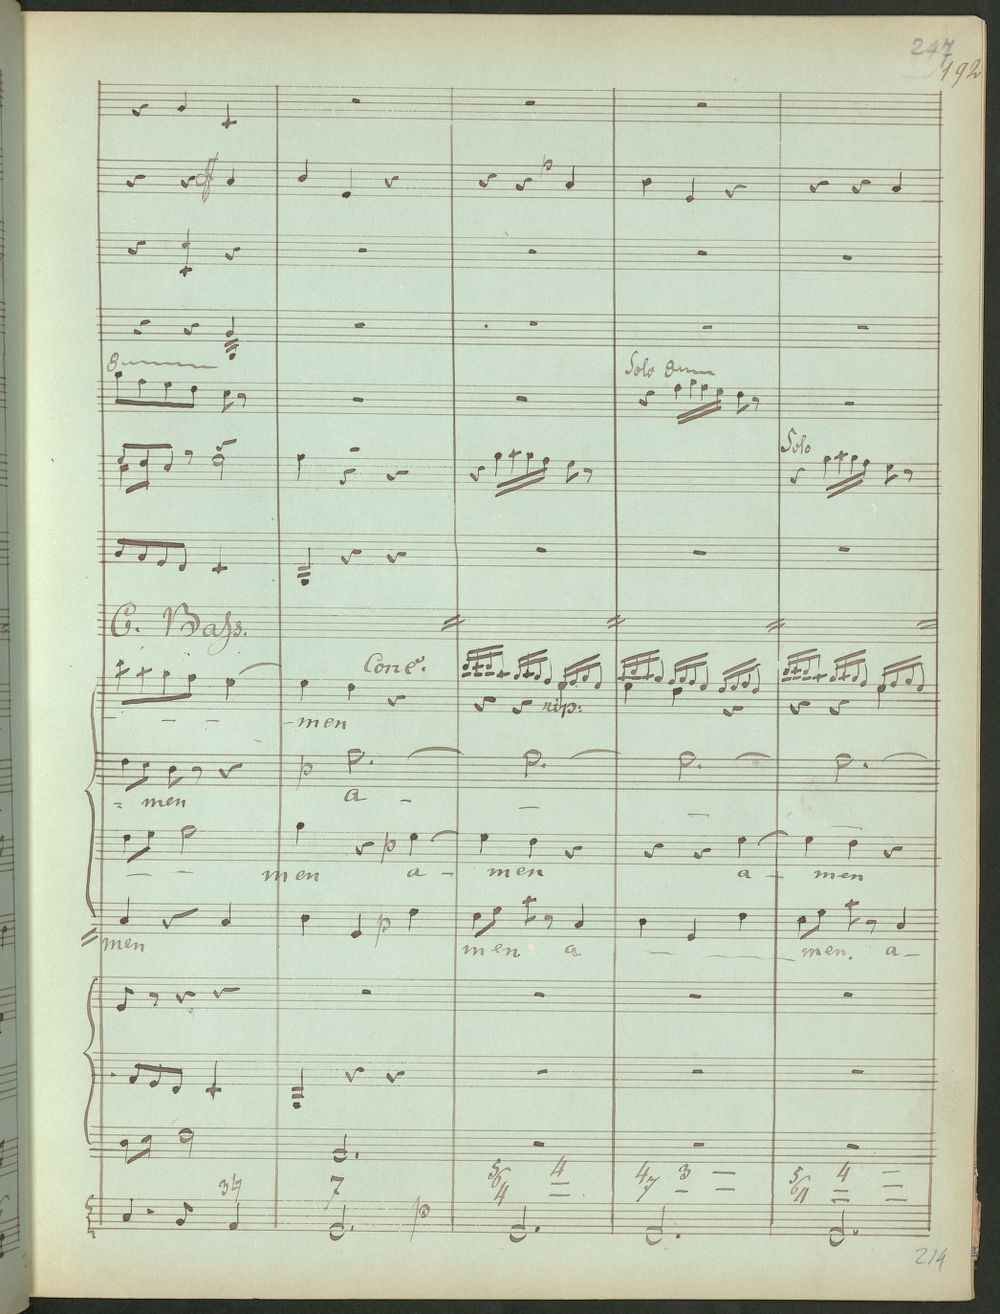 247
192
8
Solo 8
Solo
C. Bass.
Conc.
rip:
- - - -men
p
= men a -
p
- - men a - men a - men
p
men men a - - - men. a -
5 6 4 4 4 7 3 5 6 4 4
3 7
p
214